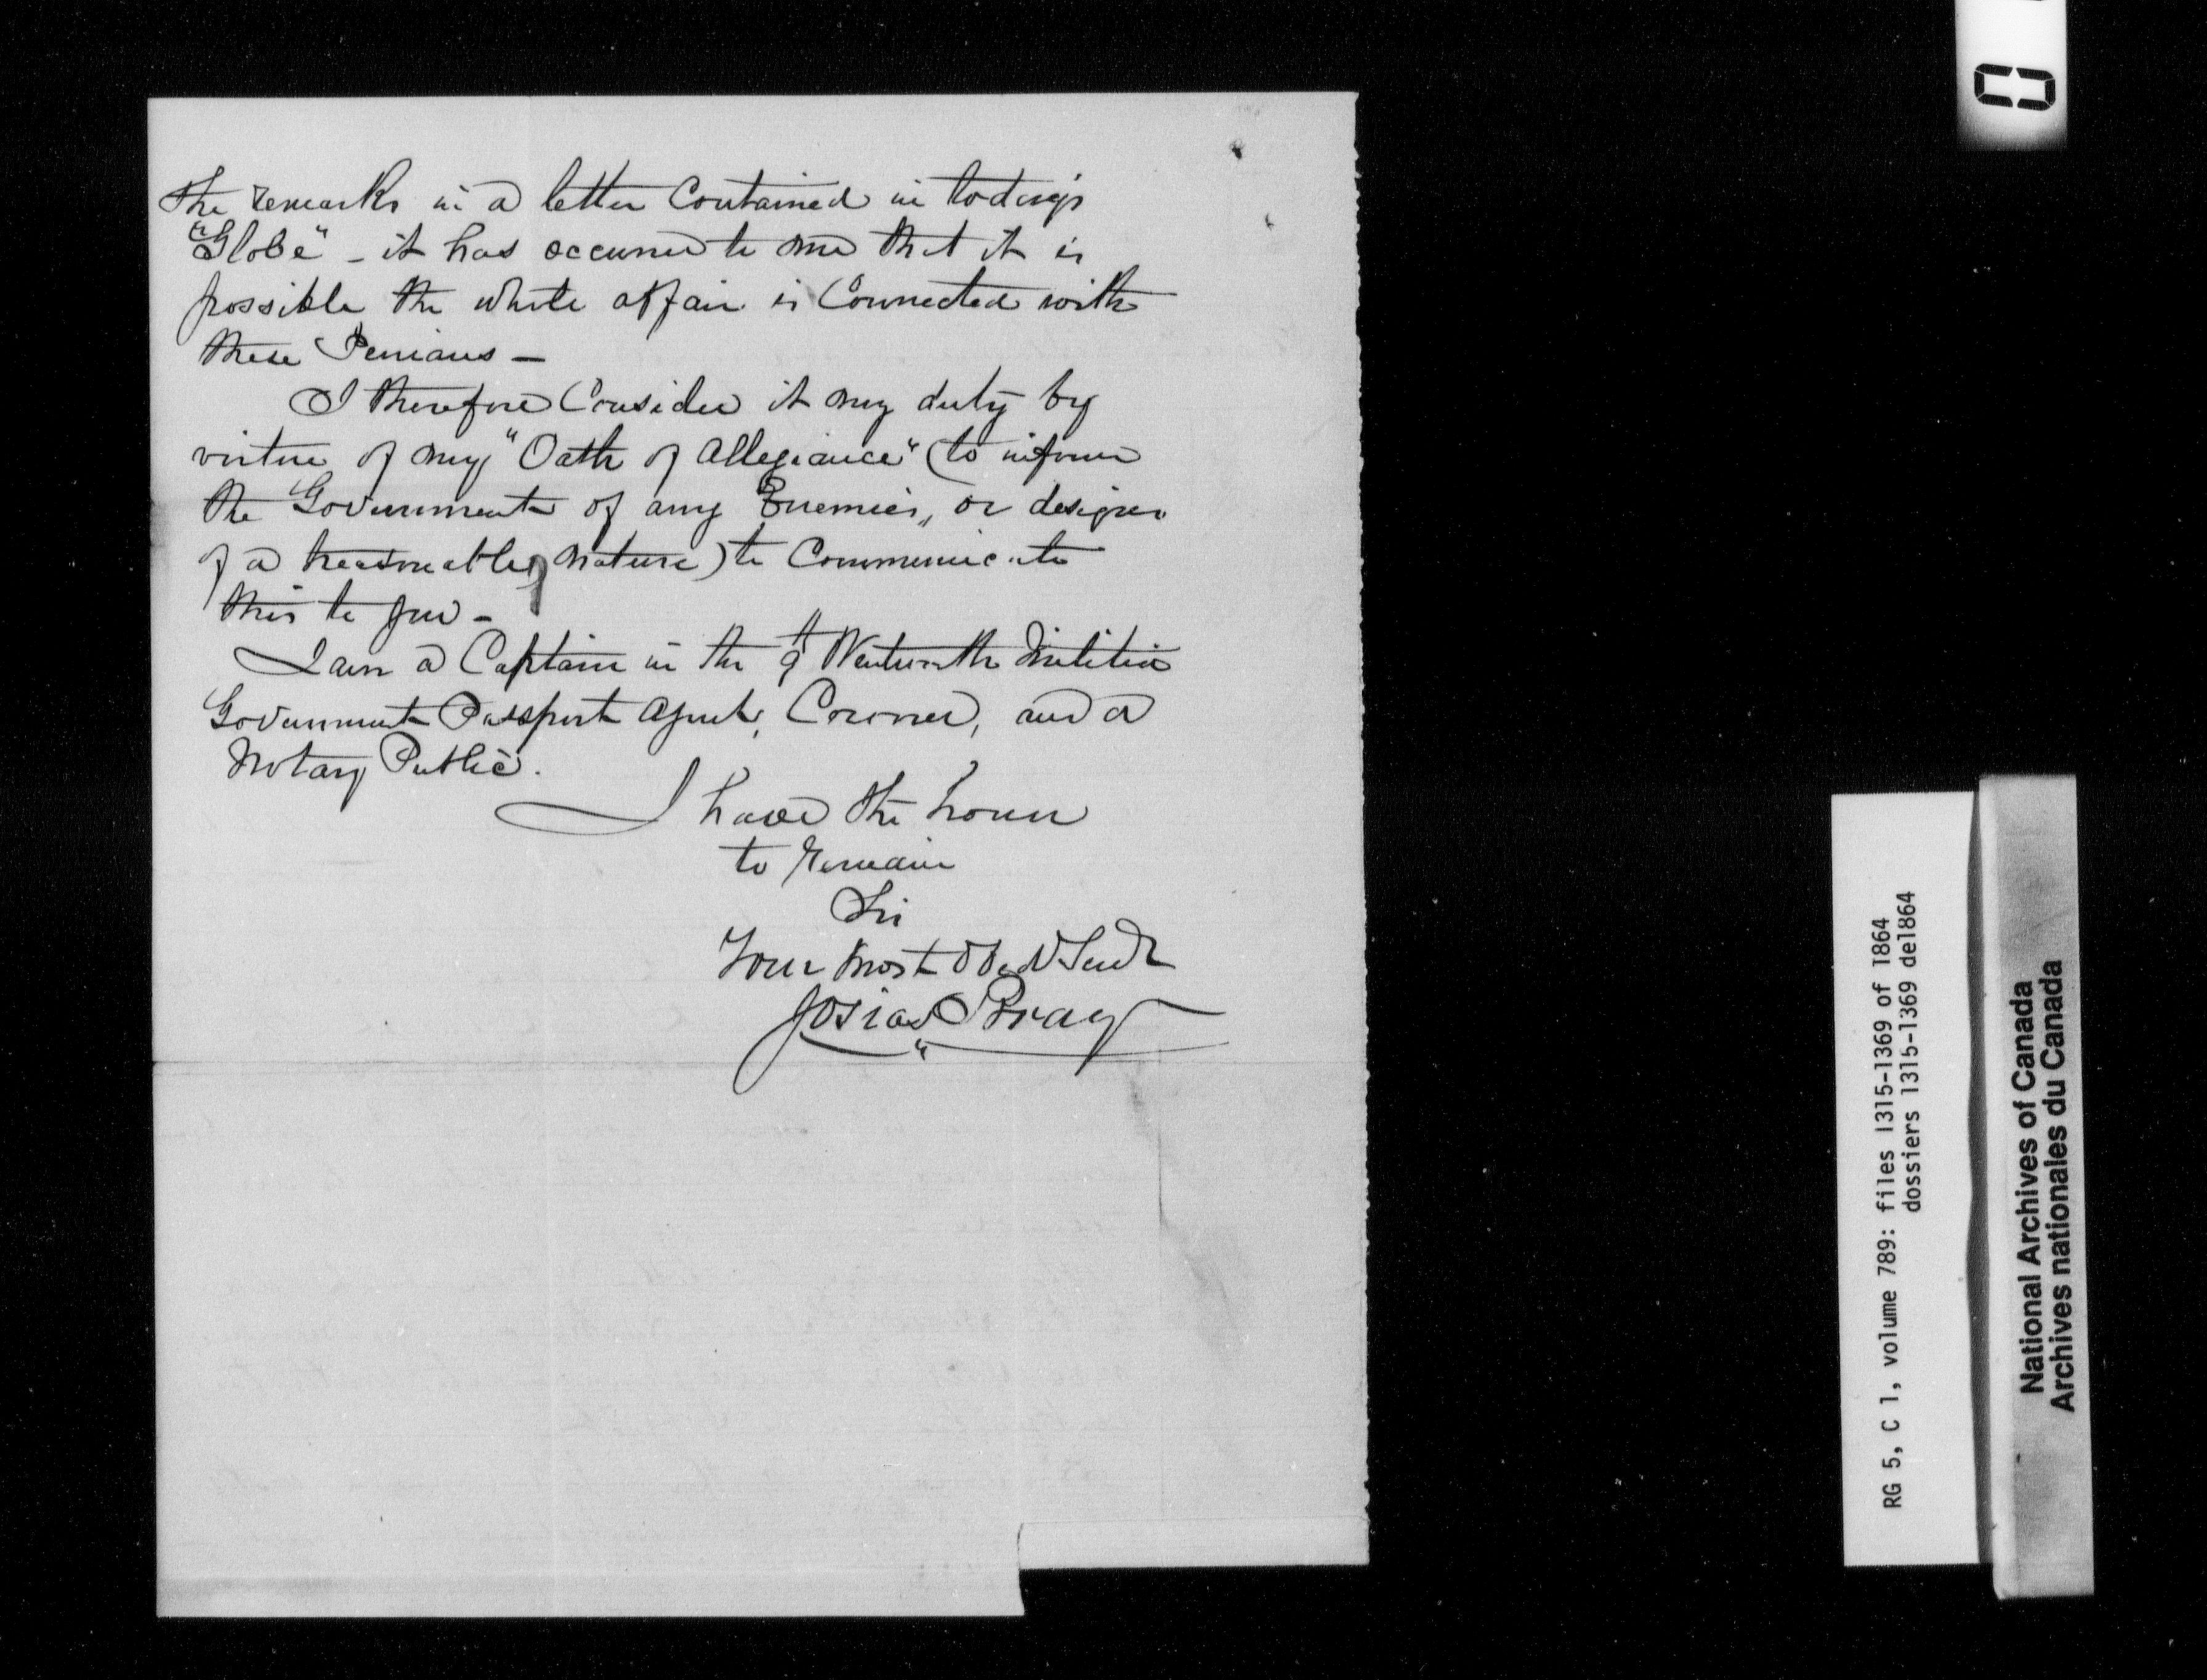 the remarks in a letter Contained in today's
"Globe" - it has occurred to me that it is
possible the whole affair is Connected with
these Fenians -
I therefore Consider it my duty by
virtue of my "Oath of Allegiance" (to inform
the Government of any Enemies, or designs
of a treasonable nature) to Communicate
this to you -
I am a Captain in the 9th Wentworth Militia
Government Passport Agent, Coroner, and a
Notary Public.
I have the honor
to Remain
Sir
Your most Obed Servt
Josias Bray
RG 5, C 1, volume 789: files 1315-1369 of 1864
dossiers 1315-1369 de1864
National Archives of Canada
Archives nationales du Canada